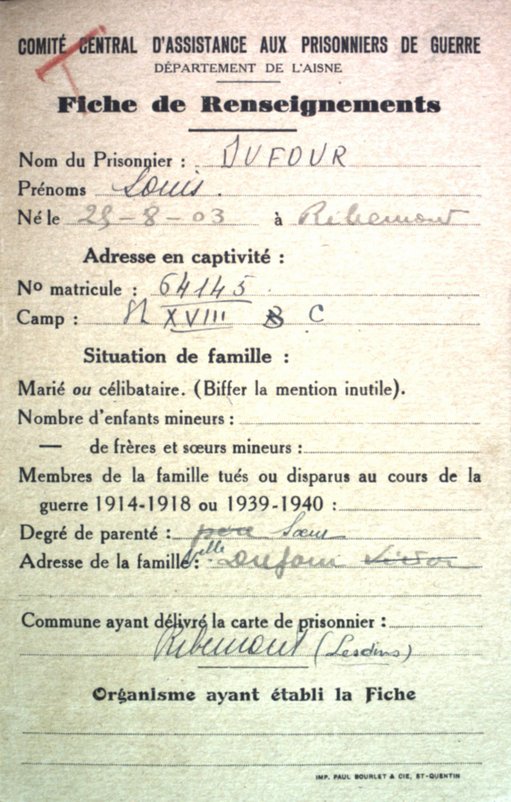 COMITÉ CENTRAL D'ASSISTANCE AUX PRISONNIERS DE GUERRE
DÉPARTEMENT DE L'AISNE
Fiche de Renseignements
Nom du Prisonnier : DUFOUR
Prénoms Louis.
Né le 25-8-03 à Ribemont
Adresse en captivité :
No matricule : 64145
Camp : XVIII C
Situation de famille :
Marié ou célibataire. (Biffer la mention inutile).
Nombre d'enfants mineurs :
— de frères et sœurs mineurs :
Membres de la famille tués ou disparus au cours de la
guerre 1914-1918 ou 1939-1940 :
Degré de parenté : père Sœur
Adresse de la famille : Melle Dufour
Commune ayant délivré la carte de prisonnier :
Ribemont (Lesdins)
Organisme ayant établi la Fiche
IMP. PAUL BOURLET & CIE, ST-QUENTIN